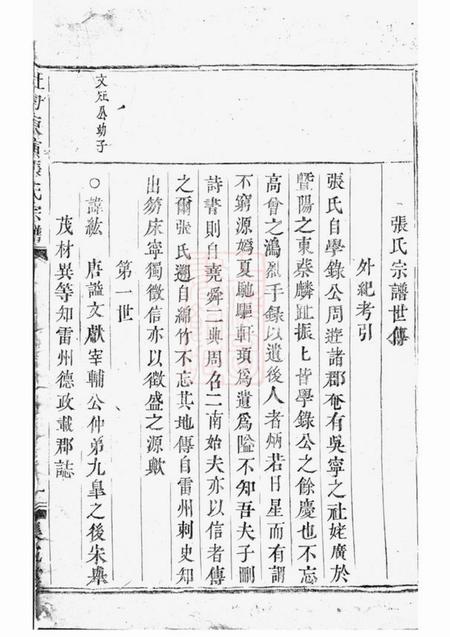 張氏宗譜世傳
外紀考引
張氏自學錄公周遊諸郡奄有吳寧之社姥廣於
暨陽之東蔡麟趾振上皆學錄公之餘慶也不忘
高曾之鴻烈手錄以遺後人者炳若日星而有謂
不窮源媯夏馳驅軒頊為遺為隘不知吾夫子刪
詩書則自堯舜二典周召二南始夫亦以信者傳
之爾張氏遡自綿竹不忘其地傳自雷州刺史知
出笏床寧獨徵信亦以徵盛之源歟
第一世
○諱紘 唐謚文獻宰輔公仲弟九臯之後朱舉
茂材異等知雷州德政載郡誌
文 公幼子
張氏宗譜